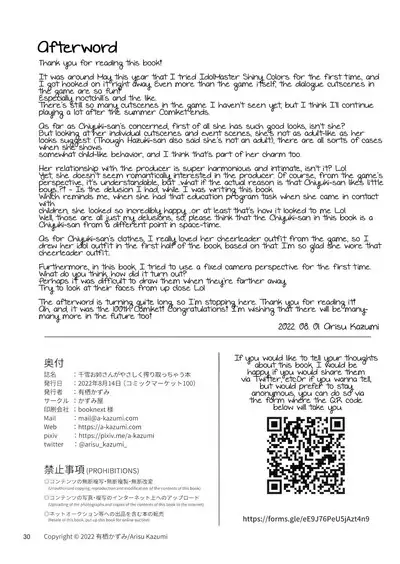 Afterword
Thank you for reading this book!
It was around May this year that I tried IdolMaster Shiny Colors for the first time, and
I got hooked on it right away. Even more than the game itself, the dialogue cutscenes in
the game are so fun!
Especially noctchill's and the like.
There's still so many cutscenes in the game I haven't seen yet, but I think I'll continue
playing a lot after the summer Comiket ends.
As far as Chiyuki-san's concerned, first of all she has such good looks, isn't she?
But looking at her individual cutscenes and event scenes, she's not as adult-like as her
looks suggest. (Though Hazuki-san also said she's not an adult), there are all sorts of cases
when she shows
somewhat child-like behavior, and I think that's part of her charm too.
Her relationship with the producer is super harmonious and intimate, isn't it? Lol
Yet, she doesn't seem romantically interested in the producer. Of course, from the game's
perspective, it's understandable, but ...what if the actual reason is that Chiyuki-san likes little
boys..?! - Is the delusion I had, while I was writing this book.
Which reminds me, when she had that education program task when she came in contact
with
children, she looked so incredibly happy ...or at least that's how it looked to me. Lol
Well, those are all just my delusions, so please think that the Chiyuki-san in this book is a
Chiyuki-san from a different point in space-time.
As for Chiyuki-san's clothes, I really loved her cheerleader outfit from the game, so I
drew her idol outfit in the first half of the book, based on that. I'm so glad she wore that
cheerleader outfit.
Furthermore, in this book, I tried to use a fixed camera perspective for the first time.
What do you think, how did it turn out?
Perhaps it was difficult to draw them when they're farther away.
Try to look at their faces from up close. Lol
The afterword is turning quite long, so I'm stopping here. Thank you for reading it!
Ah, and, it was the 100th Comiket! Congratulations! I'm wishing that there will be many-
many more in the future too!
2022. 08. 01. Arisu Kazumi
奥付
誌名 : 千雪お姉さんがやさしく搾り取っちゃう本
発行日 : 2022年8月14日（コミックマーケット100）
発行者 : 有栖かずみ
サークル : かずみ屋
印刷会社 : booknext 様
Mail : mail@a-kazumi.com
Web : https://a-kazumi.com
pixiv : https://pixiv.me/a-kazumi
twitter : @arisu_kazumi_
禁止事項 (PROHIBITIONS)
◎コンテンツの無断複写・無断複製・無断改変
(Unauthorized copying, reproduction and modification of the contents of this book)
◎コンテンツの写真・複写のインターネット上へのアップロード
(Uploading of the photographs and copies of the contents of this book to the internet)
◎ネットオークション等への出品を含む本の転売
(Resale of this book, put up this book for online auction)
If you would like to tell your thoughts
about this book, I would be
happy if you would share them
via Twitter, etc. Or if you wanna tell,
but would prefer to stay
anonymous, you can do so via
the form where the QR code
below will take you.
https://forms.gle/eE9J76PeU5jAzt4n9
30 Copyright © 2022 有栖かずみ/Arisu Kazumi